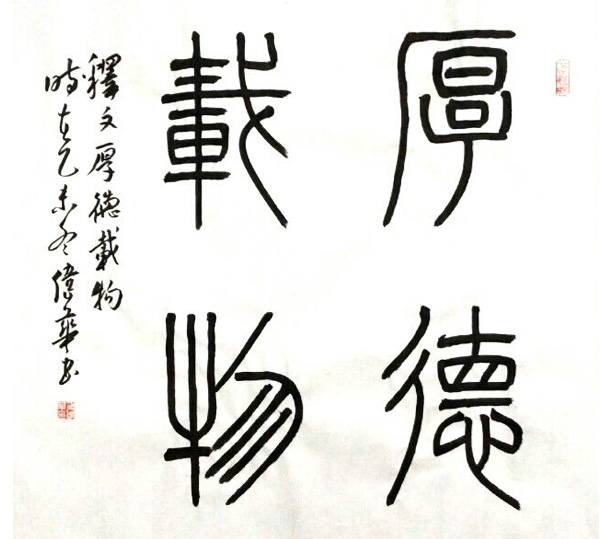 厚德
載物
釋文厚德載物
時在乙未冬偉華書